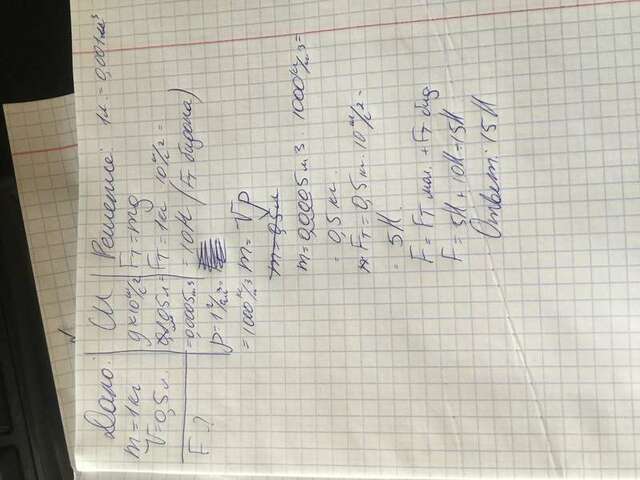 Дано:
m = 1 кг
V = 0,5 л.
F - ?
СИ
g ≈ 10 м/с2
0,5 л =
= 0,0005 м3
ρ = 1 г/см3 =
= 1000 кг/м3
Решение: 1 л. = 0,001 м3
Fт = mg
Fт = 1 кг 10 м/с2 =
= 10 Н (Fт бидона)
m = Vρ
m = 0,5 л
m = 0,0005 м3 · 1000 кг/м3 =
= 0,5 кг.
Fт = 0,5 кг · 10 м/с2 =
= 5 Н.
F = Fт мол. + Fт бид
F = 5Н + 10Н = 15Н
Ответ: 15 Н